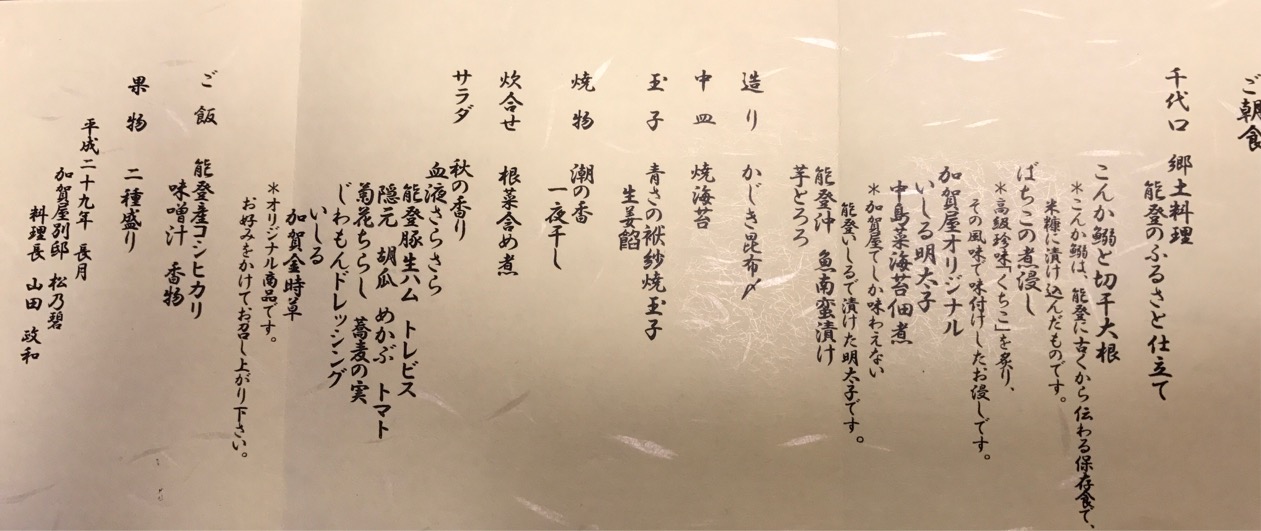 ご朝食
千代口　郷土料理
能登のふるさと仕立て
こんか鰯と切干大根
＊こんか鰯は、能登に古くから伝わる保存食で、
米糠に漬け込んだものです。
ばちこの煮浸し
＊高級珍味「くちこ」を炙り、
その風味で味付けしたお浸しです。
加賀屋オリジナル
いしる明太子
中島菜海苔佃煮
＊加賀屋でしか味わえない
能登いしるで漬けた明太子です。
能登沖　魚南蛮漬け
芋とろろ
造り　かじき昆布〆
中皿　焼海苔
玉子　青さの袱紗焼玉子
生姜餡
焼物　潮の香
一夜干し
炊合せ　根菜含め煮
サラダ　秋の香り
血液さらさら
能登豚生ハム　トレビス
隠元　胡瓜　めかぶ　トマト
菊花ちらし　蕎麦の実
じわもんドレッシング
いしる
加賀金時草
＊オリジナル商品です。
お好みをかけてお召し上がり下さい。
ご飯　能登産コシヒカリ
味噌汁　香物
果物　二種盛り
平成二十九年　長月
加賀屋別邸　松乃碧
料理長　山田　政和